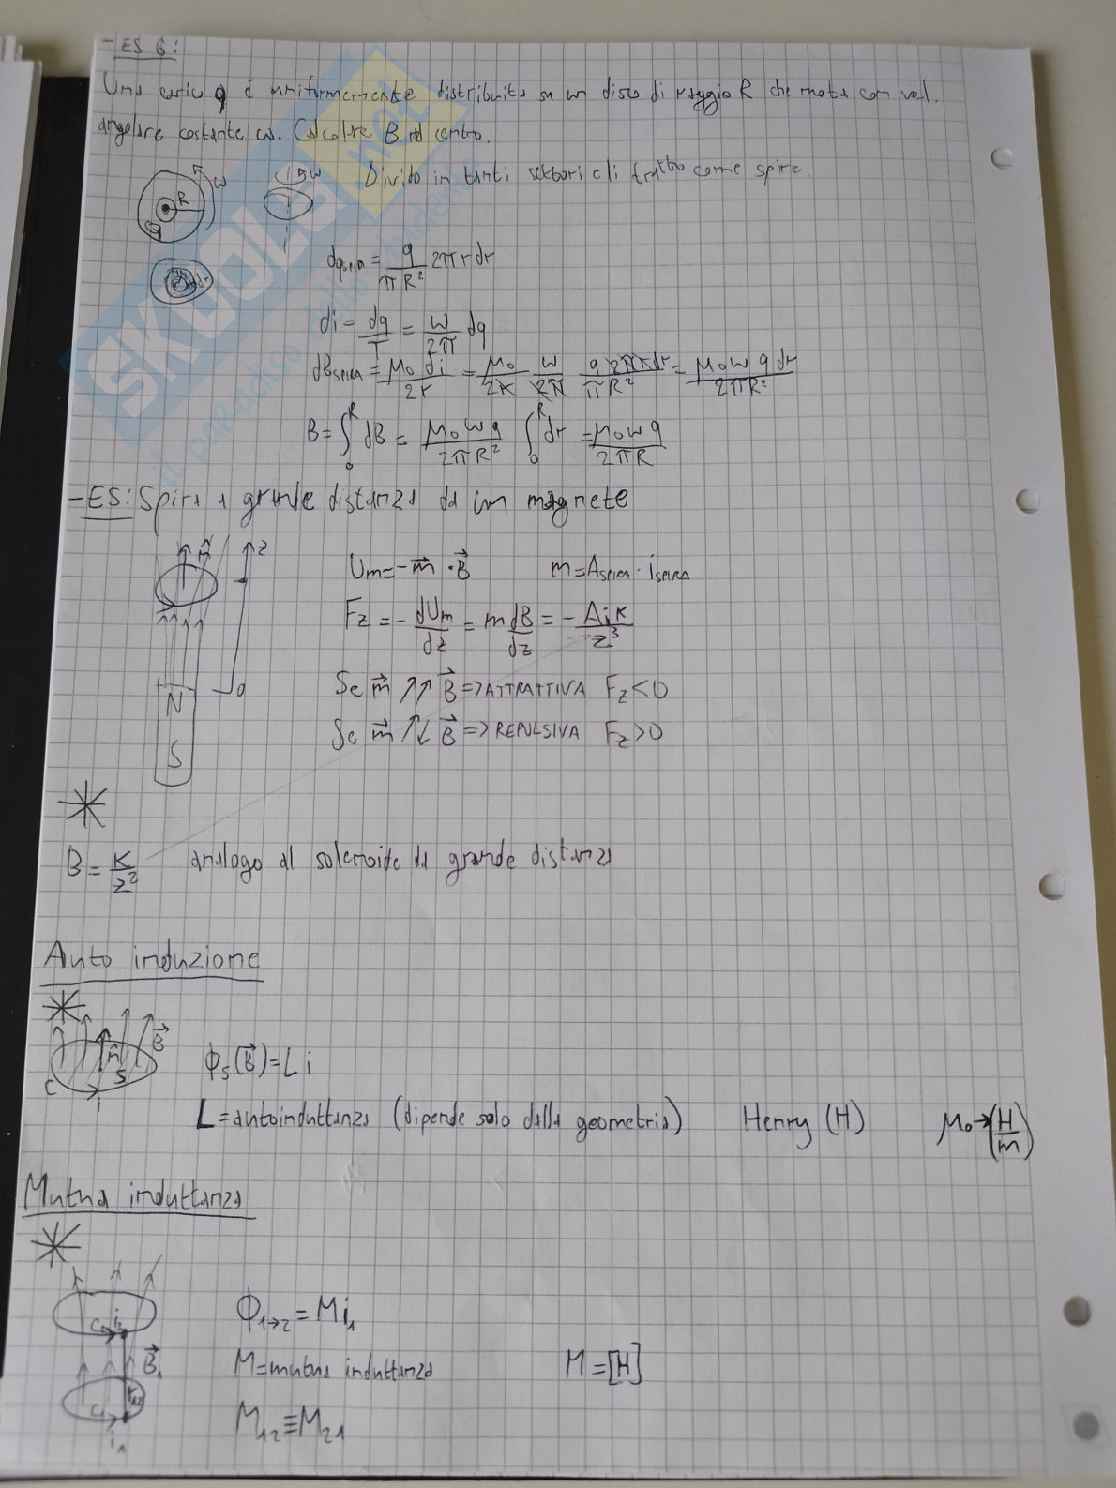 - ES 6:
Una carica q è uniformemente distribuita su un disco di raggio R che ruota con vel.
angolare costante ω. Calcolare B nel centro.
Divido in tanti settori e li tratto come spire.
ω
R
dq = q/πR² 2πrdr
di = dq/T = ω/2π dq
dBspira = μ₀ di/2r = μ₀/2r ω/2π q 2πrdr/πR² = μ₀ωq dr/2πR²
B = ∫₀ᴿ dB = μ₀ωq/2πR² ∫₀ᴿ dr = μ₀ωq/2πR
- ES: Spira a grande distanza da un magnete
z
m⃗
Um = -m⃗ · B⃗ m = Aspira · ispira
Fz = -dUm/dz = m dB/dz = -Aik/z³
Se m⃗ ↑↑ B⃗ => ATTRATTIVA Fz<0
Se m⃗ ↑↓ B⃗ => REPULSIVA Fz>0
0
N
S
B = K/z² analogo al solenoide da grande distanza
Auto induzione
B⃗
n̂
S
C
i
ϕs(B⃗) = Li
L = autoinduttanza (dipende solo dalla geometria) Henry (H) μ₀→(H/m)
Mutua induttanza
ϕ₁→₂ = Mi₁
M = mutua induttanza M = [H]
M₁₂ ≡ M₂₁
C₂
i₂
B⃗₁
C₁
i₁
SKUOLA.net